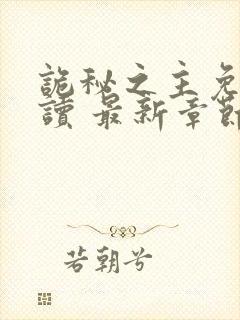 詭秘之主免
讀 最新章節
若朝兮